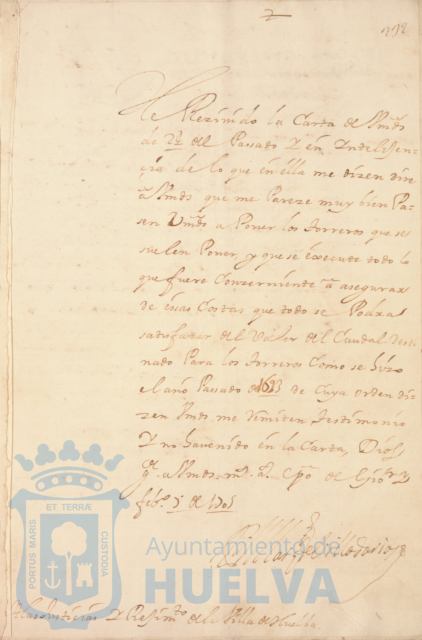 He Rezivido la Carta de Vmds
de 22 del Passado Y en Yntelijen-
çia de lo que en ella me dizen dire
a Vmds que me Pareze muy bien Pa-
sen Vmds a Poner los torreros que se
suelen Poner, y que se execute todo lo
que fuere Conzerniente a asegurar
de esas Costas que todo se Podra
satisfazer del Valor del Caudal desti
nado Para los torreros Como se hizo
el año Passado de Cuya orden di-
zen Vmds me remiten testimonio
Y no ha venido en la Carta, Dios
ge a Vmds ms as
feb.º de 1701
Ayuntamiento de
HUELVA
PORTUS MARIS
ET TERRÆ
CUSTODIA
Justicia Y Rejimto de la Villa de Huelva